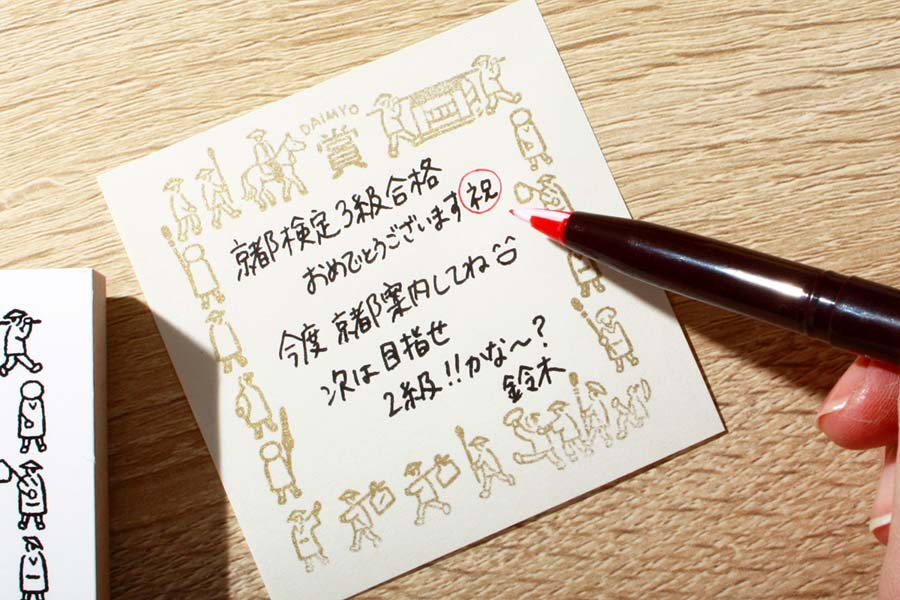 DAIMYO
賞
京都検定3級合格
おめでとうございます祝
今度 京都案内してね
次は目指せ
2級!!かな〜?
鈴木